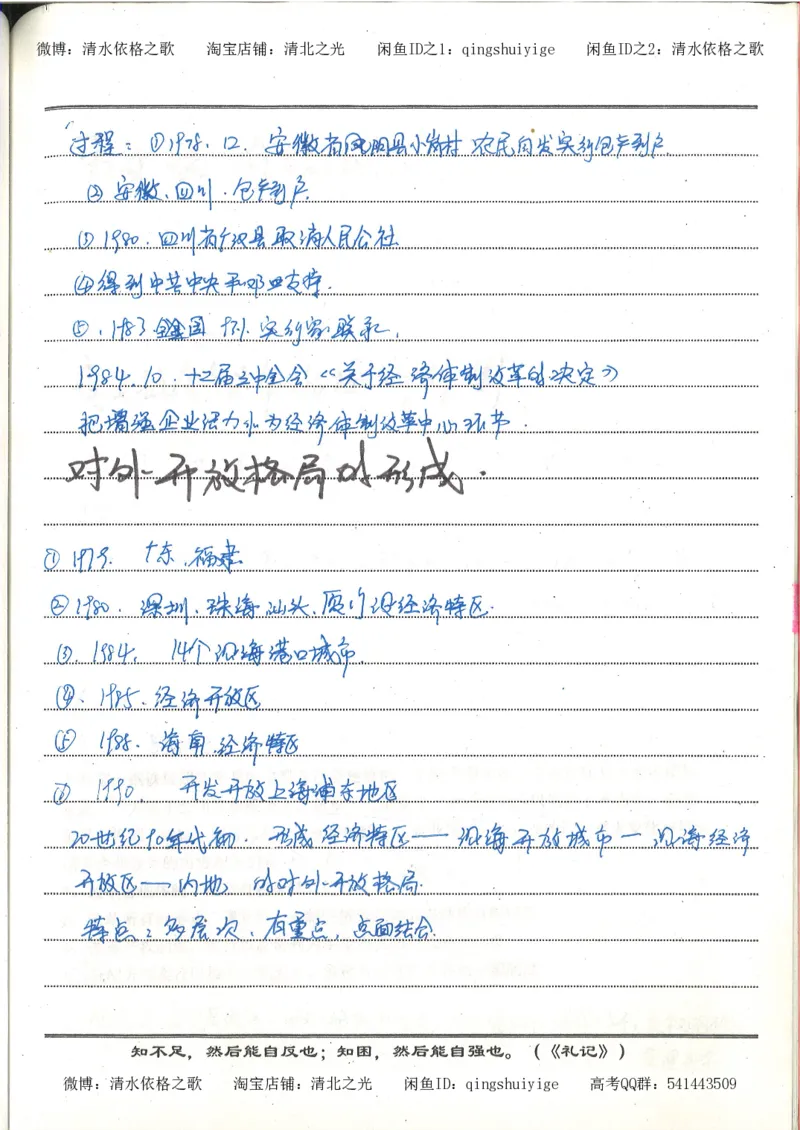 微博：清水依格之歌 淘宝店铺：清北之光 闲鱼ID之1：qingshuiyige 闲鱼ID之2：清水依格之歌
过程：①1978.12. 安徽省凤阳县小岗村 农民自发实行包产到户
② 安徽、四川.包产到户
③ 1980.四川省广汉县取消人民公社
④得到中共中央和邓 支持.
⑤.1983 全国 实行家联承.
1984.10.十二届三中全会《关于经济体制改革的决定》
把增强企业活力 为经济体制改革中心环节.
对外开放格局的形成.
① 1979. 广东.福建
②1980. 深圳、珠海 汕头、厦门 设经济特区.
③.1984. 14个沿海港口城市.
④、1985.经济开放区
⑤ 1988.海南.经济特区
1990. 开发开放上海浦东地区
20世纪90年代初. 形成 经济特区——沿海开放城市—沿海经济
开放区——内地 的对外开放格局.
特点：多层次、有重点,点面结合.
知不足，然后能自反也；知困，然后能自强也。（《礼记》）
微博：清水依格之歌 淘宝店铺：清北之光 闲鱼ID：qingshuiyige 高考QQ群：541443509